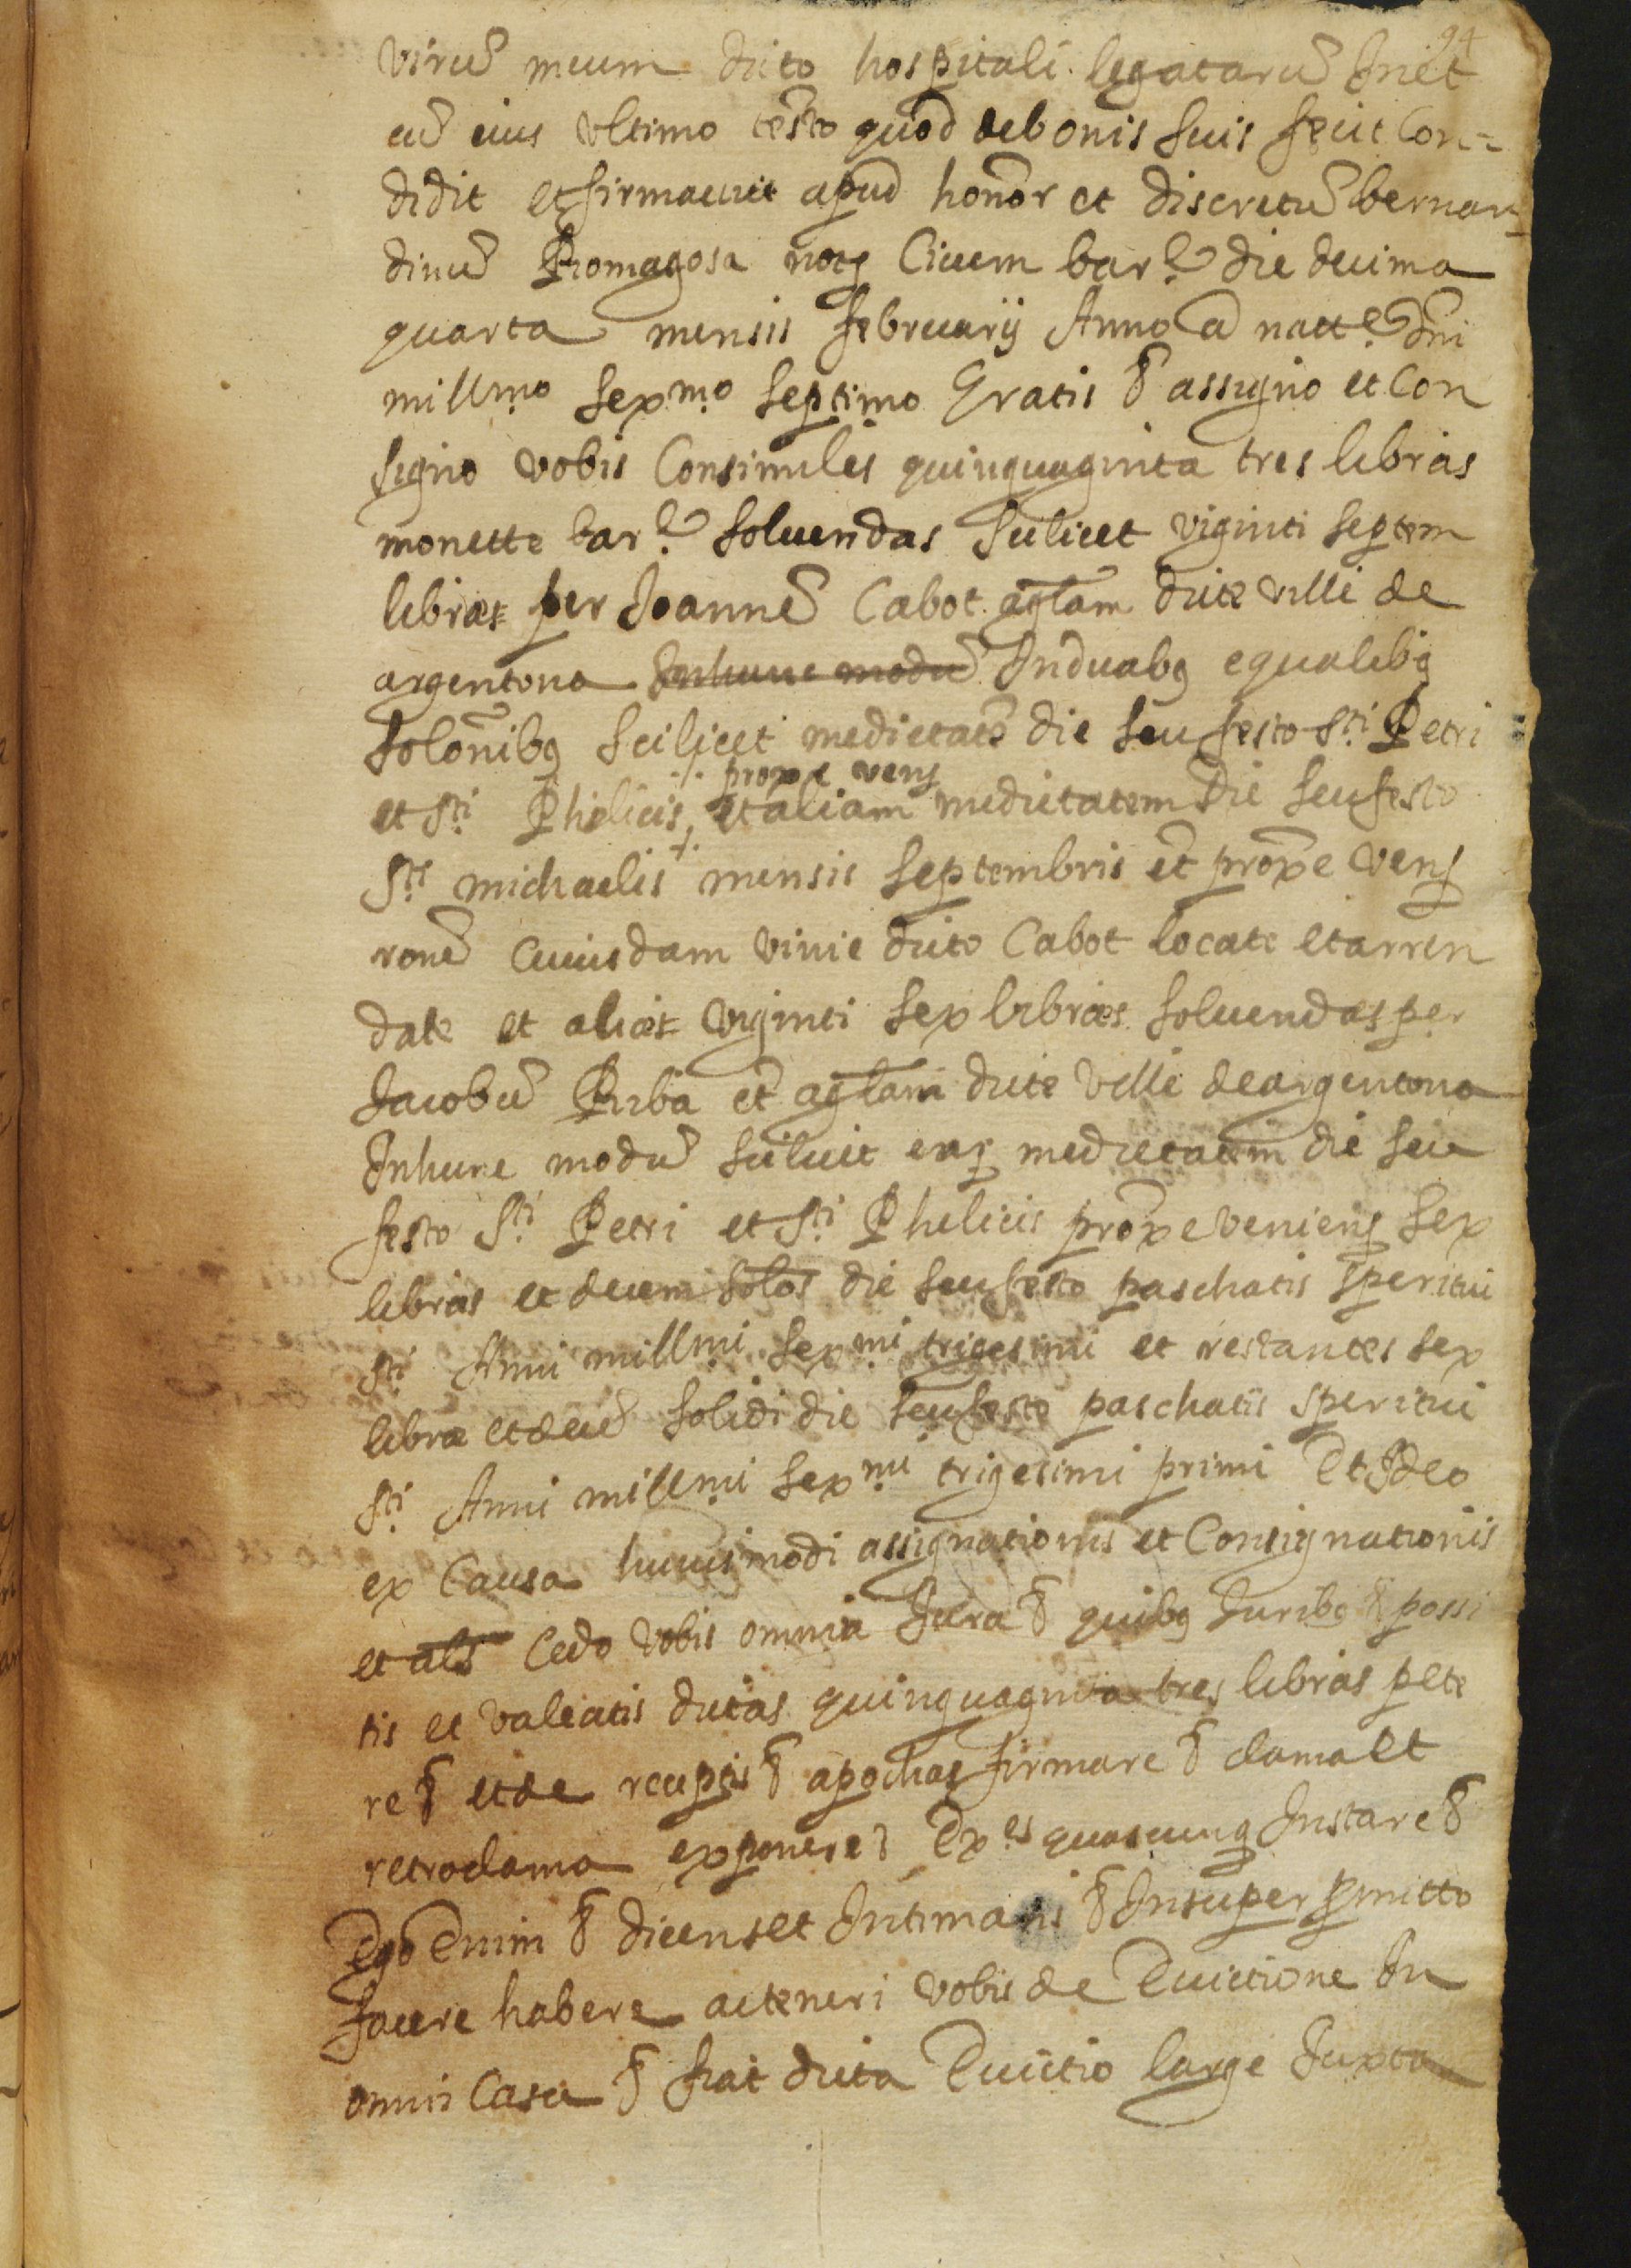 94
virũ meum dicto hospitali legatarũ In et
cũ eius vltimo testo quod de bonis suis fecit Con=
didit et firmauit apud honor et discretũ bernar
dinũ Romagosa notq Ciuem bar.e die decima
quarta mensis februarij Anno a natte dñi
millmo sexmo septimo Gratis & assigno et Con
signo vobis Consimiles quinquaginta tres libras
monette bar.e soluendas scilicet viginti septem
libras per Joannẽ Cabot aglam dicte ville de
argentona In hunc modũ In duabq equalibq
solonibq scilicet medietatẽ die seu festo Sti Petri
et Sti Phelicis, prope venq et aliam medietatem die seu festo
Sti michaelis mensis septembris et prope venq
ronẽ Cuiusdam vinie dicto Cabot locate et arren
date et alias viginti sex libras soluendas per
Jacobũ Riba et aglam dicte ville de argentona
In hunc modũ scilicet earq medietatem die seu
festo Sti Petri et Sti Phelicis prope venienq sex
libras et decem solos die seu festo paschatis speritui
Sti Anni millmi sexmi trigesimi et restantes sex
libre et decẽ solidi die seu festo paschatis speritui
Sti Anni millmi sexmi trigesimi primi Et Ideo
ex Causa huiusmodi assignationis et Consignationis
et als Cedo vobis omnia Jura & quibq Juribq & possi
tis et valeatis dictas quinquaginta tres libras pete
re & et de receptis & apochas firmare & clama et
retroclama exponere & Exes quascunq Instare &
Ego Enim & dicens et Intimans & Insuper pmitto
facere habere ac teneri vobis de Euictione In
omni Casu & fiat dicta Euictio large Juxta